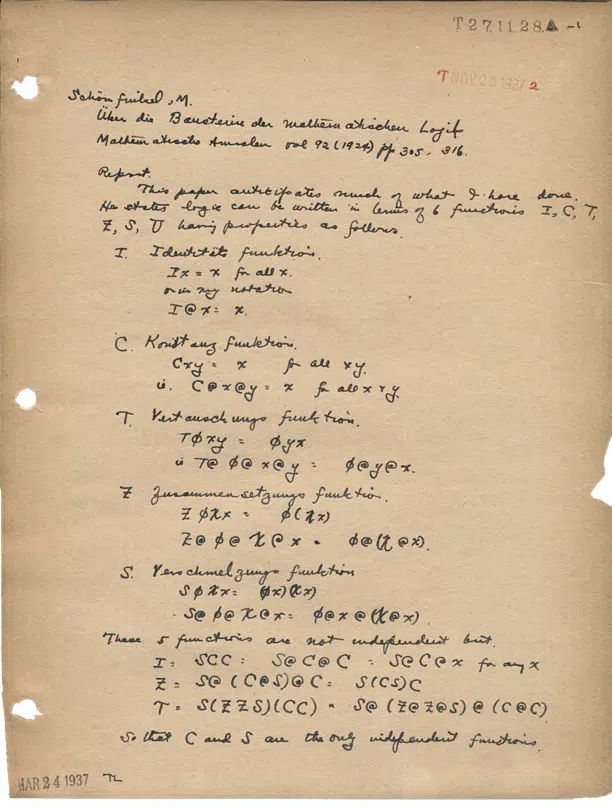 T271128A-1
T NOV 28 1927 2
Schönfinkel, M.
Über die Bausteine der mathematischen Logik
Mathematische Annalen vol 92 (1924) pp 305-316.
Report.
This paper anticipates much of what I have done.
He states logic can be written in terms of 6 functions I, C, T,
Z, S, U having properties as follows.
I. Identitäts funktion.
Ix = x for all x.
or in my notation
I@x = x.
C. Konstanz funktion.
Cxy = x for all xy.
i.e. C@x@y = x for all x + y.
T. Vertauschungs funktion.
Tϕxy = ϕyx
ie T@ϕ@x@y = ϕ@y@x.
Z Zusammensetzungs funktion.
Zϕχx = ϕ(χx)
Z@ϕ@χ@x = ϕ@(χ@x).
S. Verschmelzungs funktion
Sϕχx = (ϕx)(χx)
S@ϕ@χ@x = ϕ@x@(χ@x).
These 5 functions are not independent but.
I = SCC = S@C@C = S@C@x for any x
Z = S@(C@S)@C = S(CS)C
T = S(ZZS)(CC) = S@(Z@Z@S)@(C@C)
So that C and S are the only independent functions.
MAR 24 1937 TL